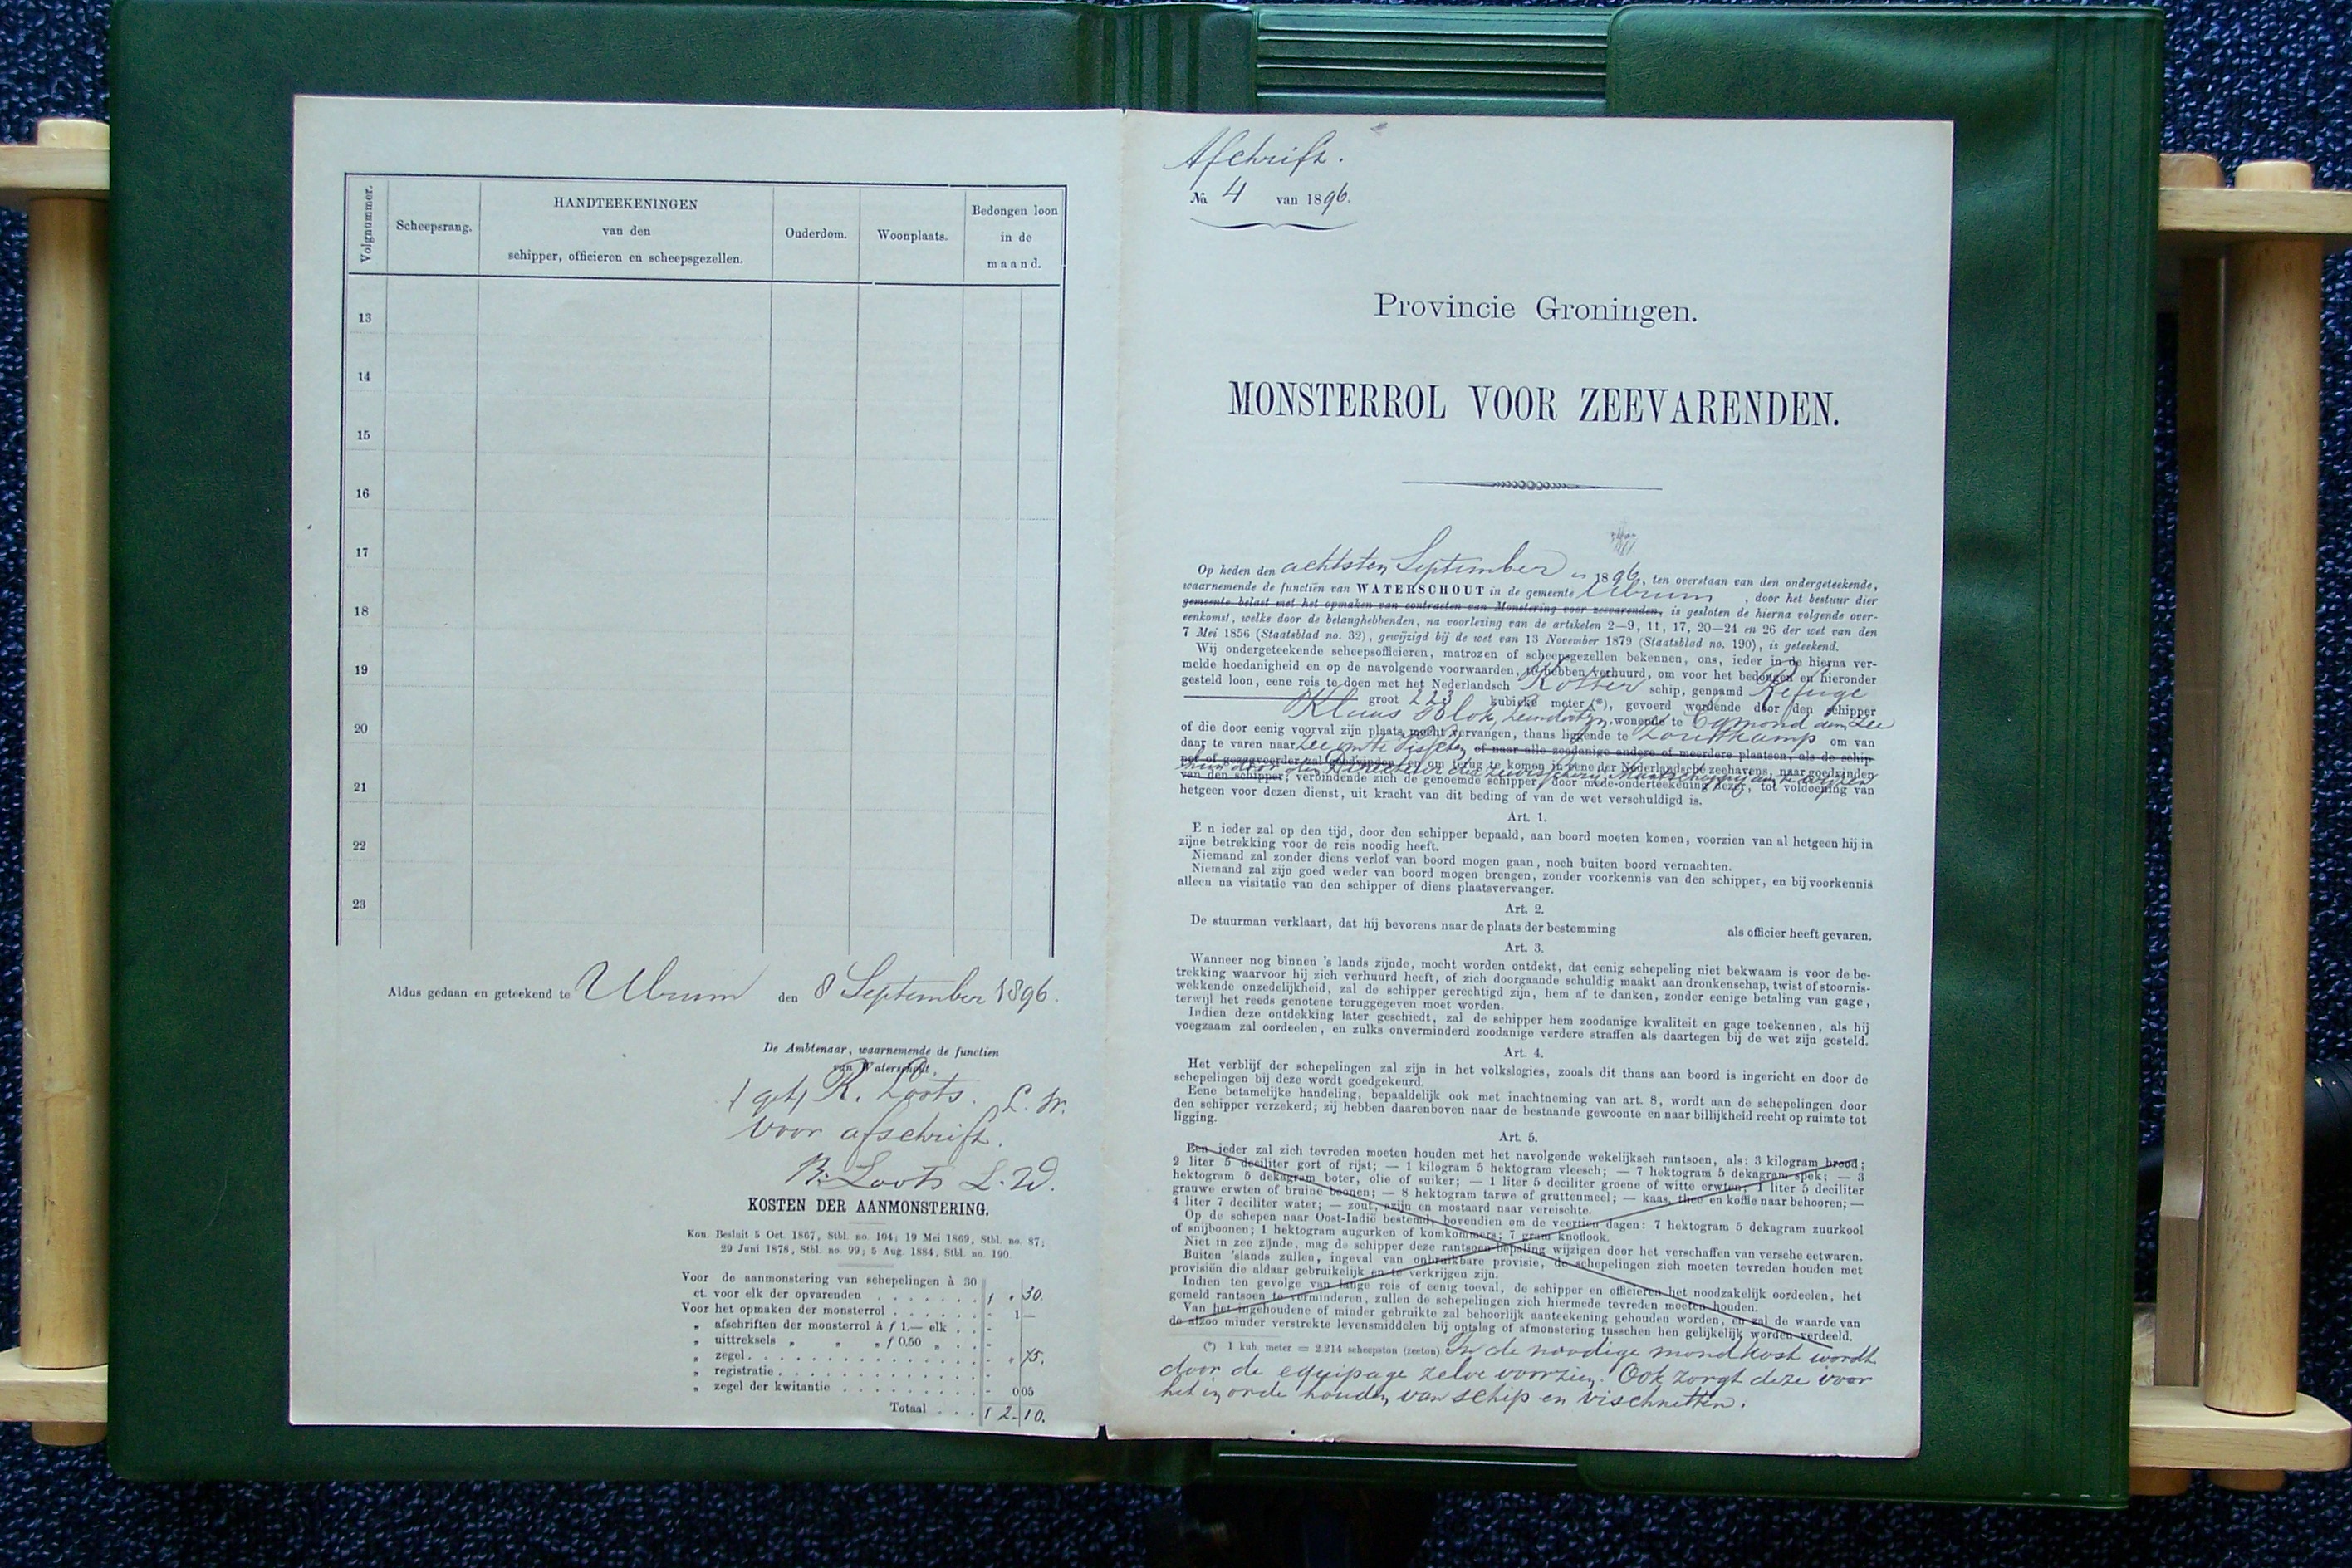 Volgnummer.
Scheepsrang.
HANDTEEKENINGEN
van den
schipper, officieren en scheepsgezellen.
Ouderdom.
Woonplaats.
Bedongen loon
in de
maand.
13
14
15
16
17
18
19
20
21
22
23
Aldus gedaan en geteekend te Ulrum den 8 September 1896.
De Ambtenaar, waarnemende de functien
van Waterschout,
(get) R. Loots. L. W.
voor afschrift.
R. Loots L. W.
KOSTEN DER AANMONSTERING.
Kon. Besluit 5 Oct. 1867, Stbl. no. 104; 19 Mei 1869, Stbl. no. 87;
29 Juni 1878, Stbl. no. 99; 5 Aug. 1884, Stbl. no. 190.
Voor de aanmonstering van schepelingen à 30
ct. voor elk der opvarenden . . . . . . . ƒ „ 30.
Voor het opmaken der monsterrol . . . . . - 1 —
„ afschriften der monsterrol à ƒ 1.— elk . . -
„ uittreksels „ „ „ ƒ 0.50 „ . . -
„ zegel . . . . . . . . . . . . . . - „ 75.
„ registratie . . . . . . . . . . . . -
„ zegel der kwitantie . . . . . . . . . - 0 05
Totaal . . . ƒ 2.10.
Afschrift.
No. 4 van 1896.
Provincie Groningen.
MONSTERROL VOOR ZEEVARENDEN.
Op heden den achtsten September 1896, ten overstaan van den ondergeteekende,
waarnemende de functiën van WATERSCHOUT in de gemeente Ulrum, door het bestuur dier
gemeente belast met het opmaken van contracten van Monstering voor zeevarenden, is gesloten de hierna volgende over-
eenkomst, welke door de belanghebbenden, na voorlezing van de artikelen 2—9, 11, 17, 20—24 en 26 der wet van den
7 Mei 1856 (Staatsblad no. 32), gewijzigd bij de wet van 13 November 1879 (Staatsblad no. 190), is geteekend.
Wij ondergeteekende scheepsofficieren, matrozen of scheepsgezellen bekennen, ons, ieder in de hierna ver-
melde hoedanigheid en op de navolgende voorwaarden, te hebben verhuurd, om voor het bedongen en hieronder
gesteld loon, eene reis te doen met het Nederlandsch Kotter schip, genaamd Refuge
groot 223 kubieke meter (*), gevoerd wordende door den schipper
Klaas Blok, wonende te Egmond aan Zee
of die door eenig voorval zijn plaats mocht vervangen, thans liggende te Zoutkamp om van
daar te varen naar Zee om te visschen of naar alle zoodanige andere of meerdere plaatsen, als de schip-
per of gezagvoerder zal goedvinden, en om terug te komen in eene der Nederlandsche zeehavens, naar goedvinden
hun door den Directeur der Zeevisscherij Maatschappij aan te wijzen
van den schipper; verbindende zich de genoemde schipper, door mede-onderteekening dezer, tot voldoening van
hetgeen voor dezen dienst, uit kracht van dit beding of van de wet verschuldigd is.
Art. 1.
E n ieder zal op den tijd, door den schipper bepaald, aan boord moeten komen, voorzien van al hetgeen hij in
zijne betrekking voor de reis noodig heeft.
Niemand zal zonder diens verlof van boord mogen gaan, noch buiten boord vernachten.
Niemand zal zijn goed weder van boord mogen brengen, zonder voorkennis van den schipper, en bij voorkennis
alleen na visitatie van den schipper of diens plaatsvervanger.
Art. 2.
De stuurman verklaart, dat hij bevorens naar de plaats der bestemming als officier heeft gevaren.
Art. 3.
Wanneer nog binnen 's lands zijnde, mocht worden ontdekt, dat eenig schepeling niet bekwaam is voor de be-
trekking waarvoor hij zich verhuurd heeft, of zich doorgaande schuldig maakt aan dronkenschap, twist of stoornis-
wekkende onzedelijkheid, zal de schipper gerechtigd zijn, hem af te danken, zonder eenige betaling van gage,
terwijl het reeds genotene teruggegeven moet worden.
Indien deze ontdekking later geschiedt, zal de schipper hem zoodanige kwaliteit en gage toekennen, als hij
voegzaam zal oordeelen, en zulks onverminderd zoodanige verdere straffen als daartegen bij de wet zijn gesteld.
Art. 4.
Het verblijf der schepelingen zal zijn in het volkslogies, zooals dit thans aan boord is ingericht en door de
schepelingen bij deze wordt goedgekeurd.
Eene betamelijke handeling, bepaaldelijk ook met inachtneming van art. 8, wordt aan de schepelingen door
den schipper verzekerd; zij hebben daarenboven naar de bestaande gewoonte en naar billijkheid recht op ruimte tot
ligging.
Art. 5.
Een ieder zal zich tevreden moeten houden met het navolgende wekelijksch rantsoen, als: 3 kilogram brood;
2 liter 5 deciliter gort of rijst; — 1 kilogram 5 hektogram vleesch; — 7 hektogram 5 dekagram spek; — 3
hektogram 5 dekagram boter, olie of suiker; — 1 liter 5 deciliter groene of witte erwten; 1 liter 5 deciliter
grauwe erwten of bruine boonen; — 8 hektogram tarwe of gruttenmeel; — kaas, thee en koffie naar behooren; —
4 liter 7 deciliter water; — zout, azijn en mostaard naar vereischte.
Op de schepen naar Oost-Indië bestemd, bovendien om de veertien dagen: 7 hektogram 5 dekagram zuurkool
of snijboonen; 1 hektogram augurken of komkommers; 7 gram knoflook.
Niet in zee zijnde, mag de schipper deze rantsoen-bepaling wijzigen door het verschaffen van versche eetwaren.
Buiten 'slands zullen, ingeval van onbruikbare provisie, de schepelingen zich moeten tevreden houden met
provisiën die aldaar gebruikelijk en te verkrijgen zijn.
Indien ten gevolge van lange reis of eenig toeval, de schipper en officieren het noodzakelijk oordeelen, het
gemeld rantsoen te verminderen, zullen de schepelingen zich hiermede tevreden moeten houden.
Van het ingehoudene of minder gebruikte zal behoorlijk aanteekening gehouden worden, en zal de waarde van
de alzoo minder verstrekte levensmiddelen bij ontslag of afmonstering tusschen hen gelijkelijk worden verdeeld.
(*) 1 kub. meter = 2.214 scheepston (zeeton). In de noodige mondkost wordt
door de equipage zelve voorzien. Ook zorgt deze voor
het in orde houden van schip en vischnetten.